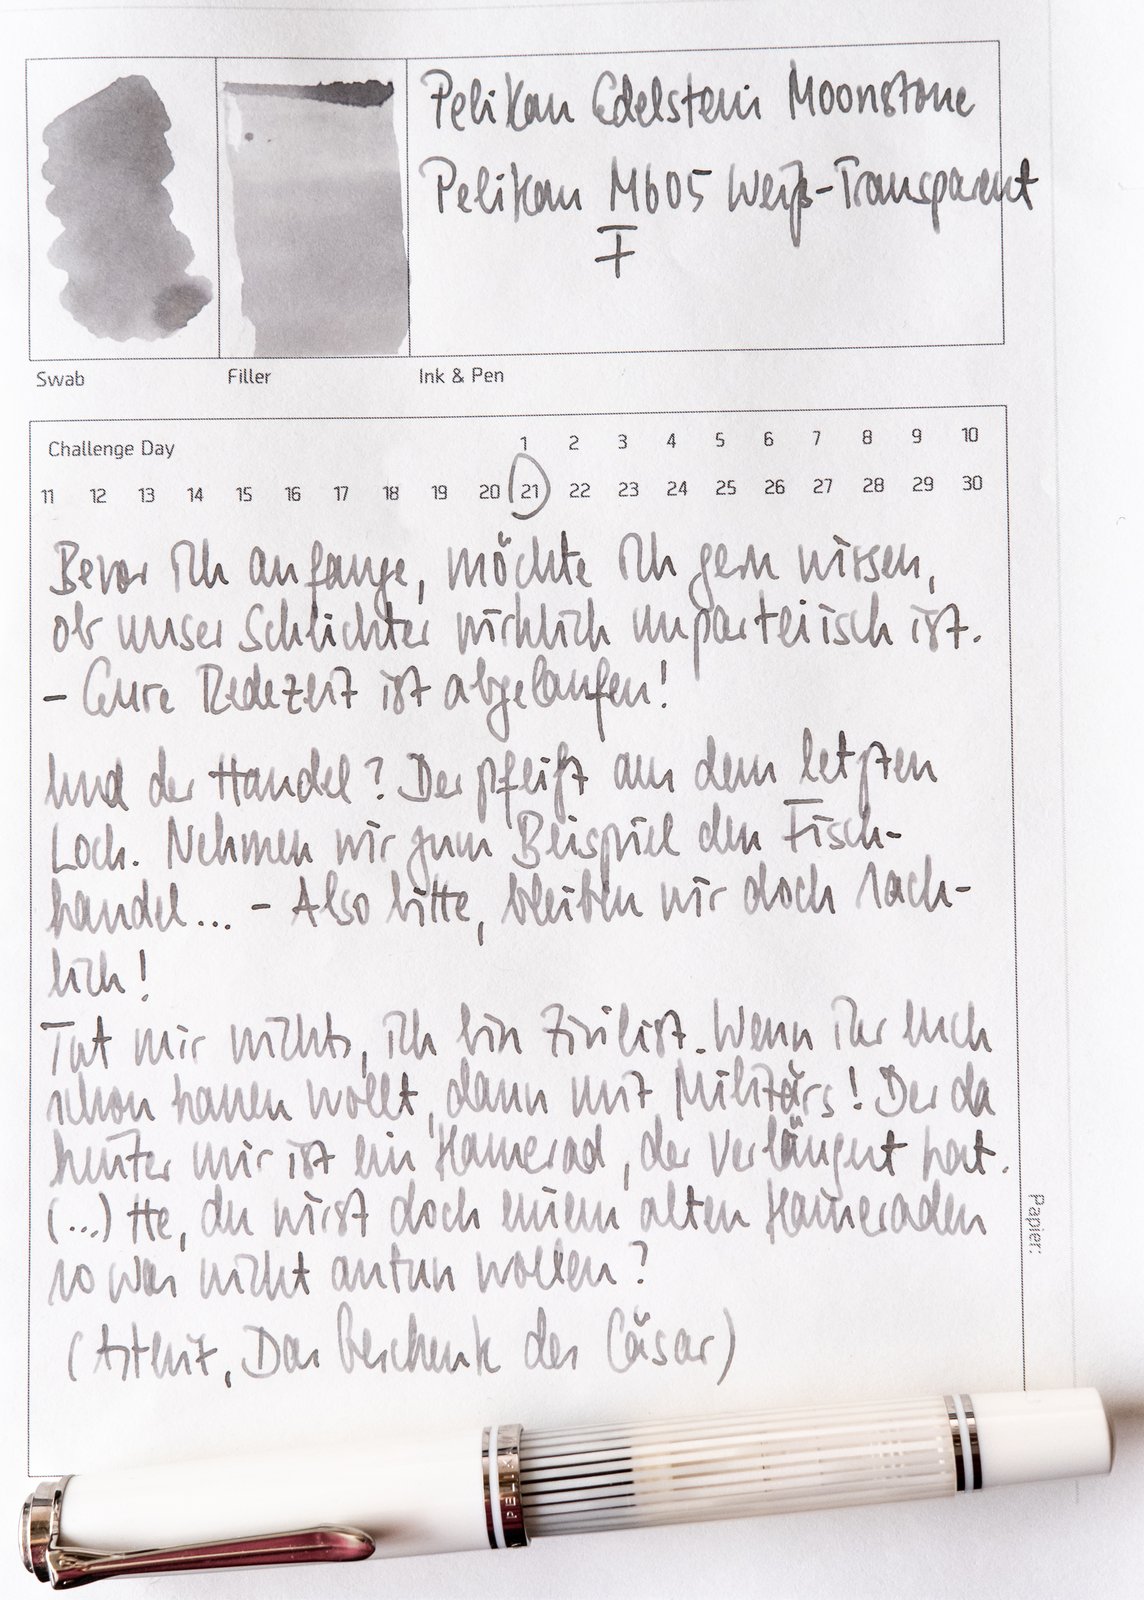 Pelikan Edelstein Moonstone
Pelikan M605 Weiß-Transparent
F
Swab
Filler
Ink & Pen
Challenge Day
1 2 3 4 5 6 7 8 9 10
11 12 13 14 15 16 17 18 19 20 21 22 23 24 25 26 27 28 29 30
Bevor ich anfange, möchte ich gern wissen,
ob unser Schlichter wirklich unparteiisch ist.
- Eure Redezeit ist abgelaufen!
Und der Handel? Der pfeift aus dem letzten
Loch. Nehmen wir zum Beispiel den Fisch-
handel... - Also bitte, bleiben wir doch sach-
lich!
Tut mir nichts, ich bin Zivilist. Wenn ihr Euch
schon hauen wollt, dann mit Militärs! Der da
hinter mir ist ein Kamerad, der verlängert hat.
(...) He, du wirst doch einem alten Kameraden
so was nicht antun wollen?
(Asterix, Das Geschenk des Cäsar)
Papier:
PELIK